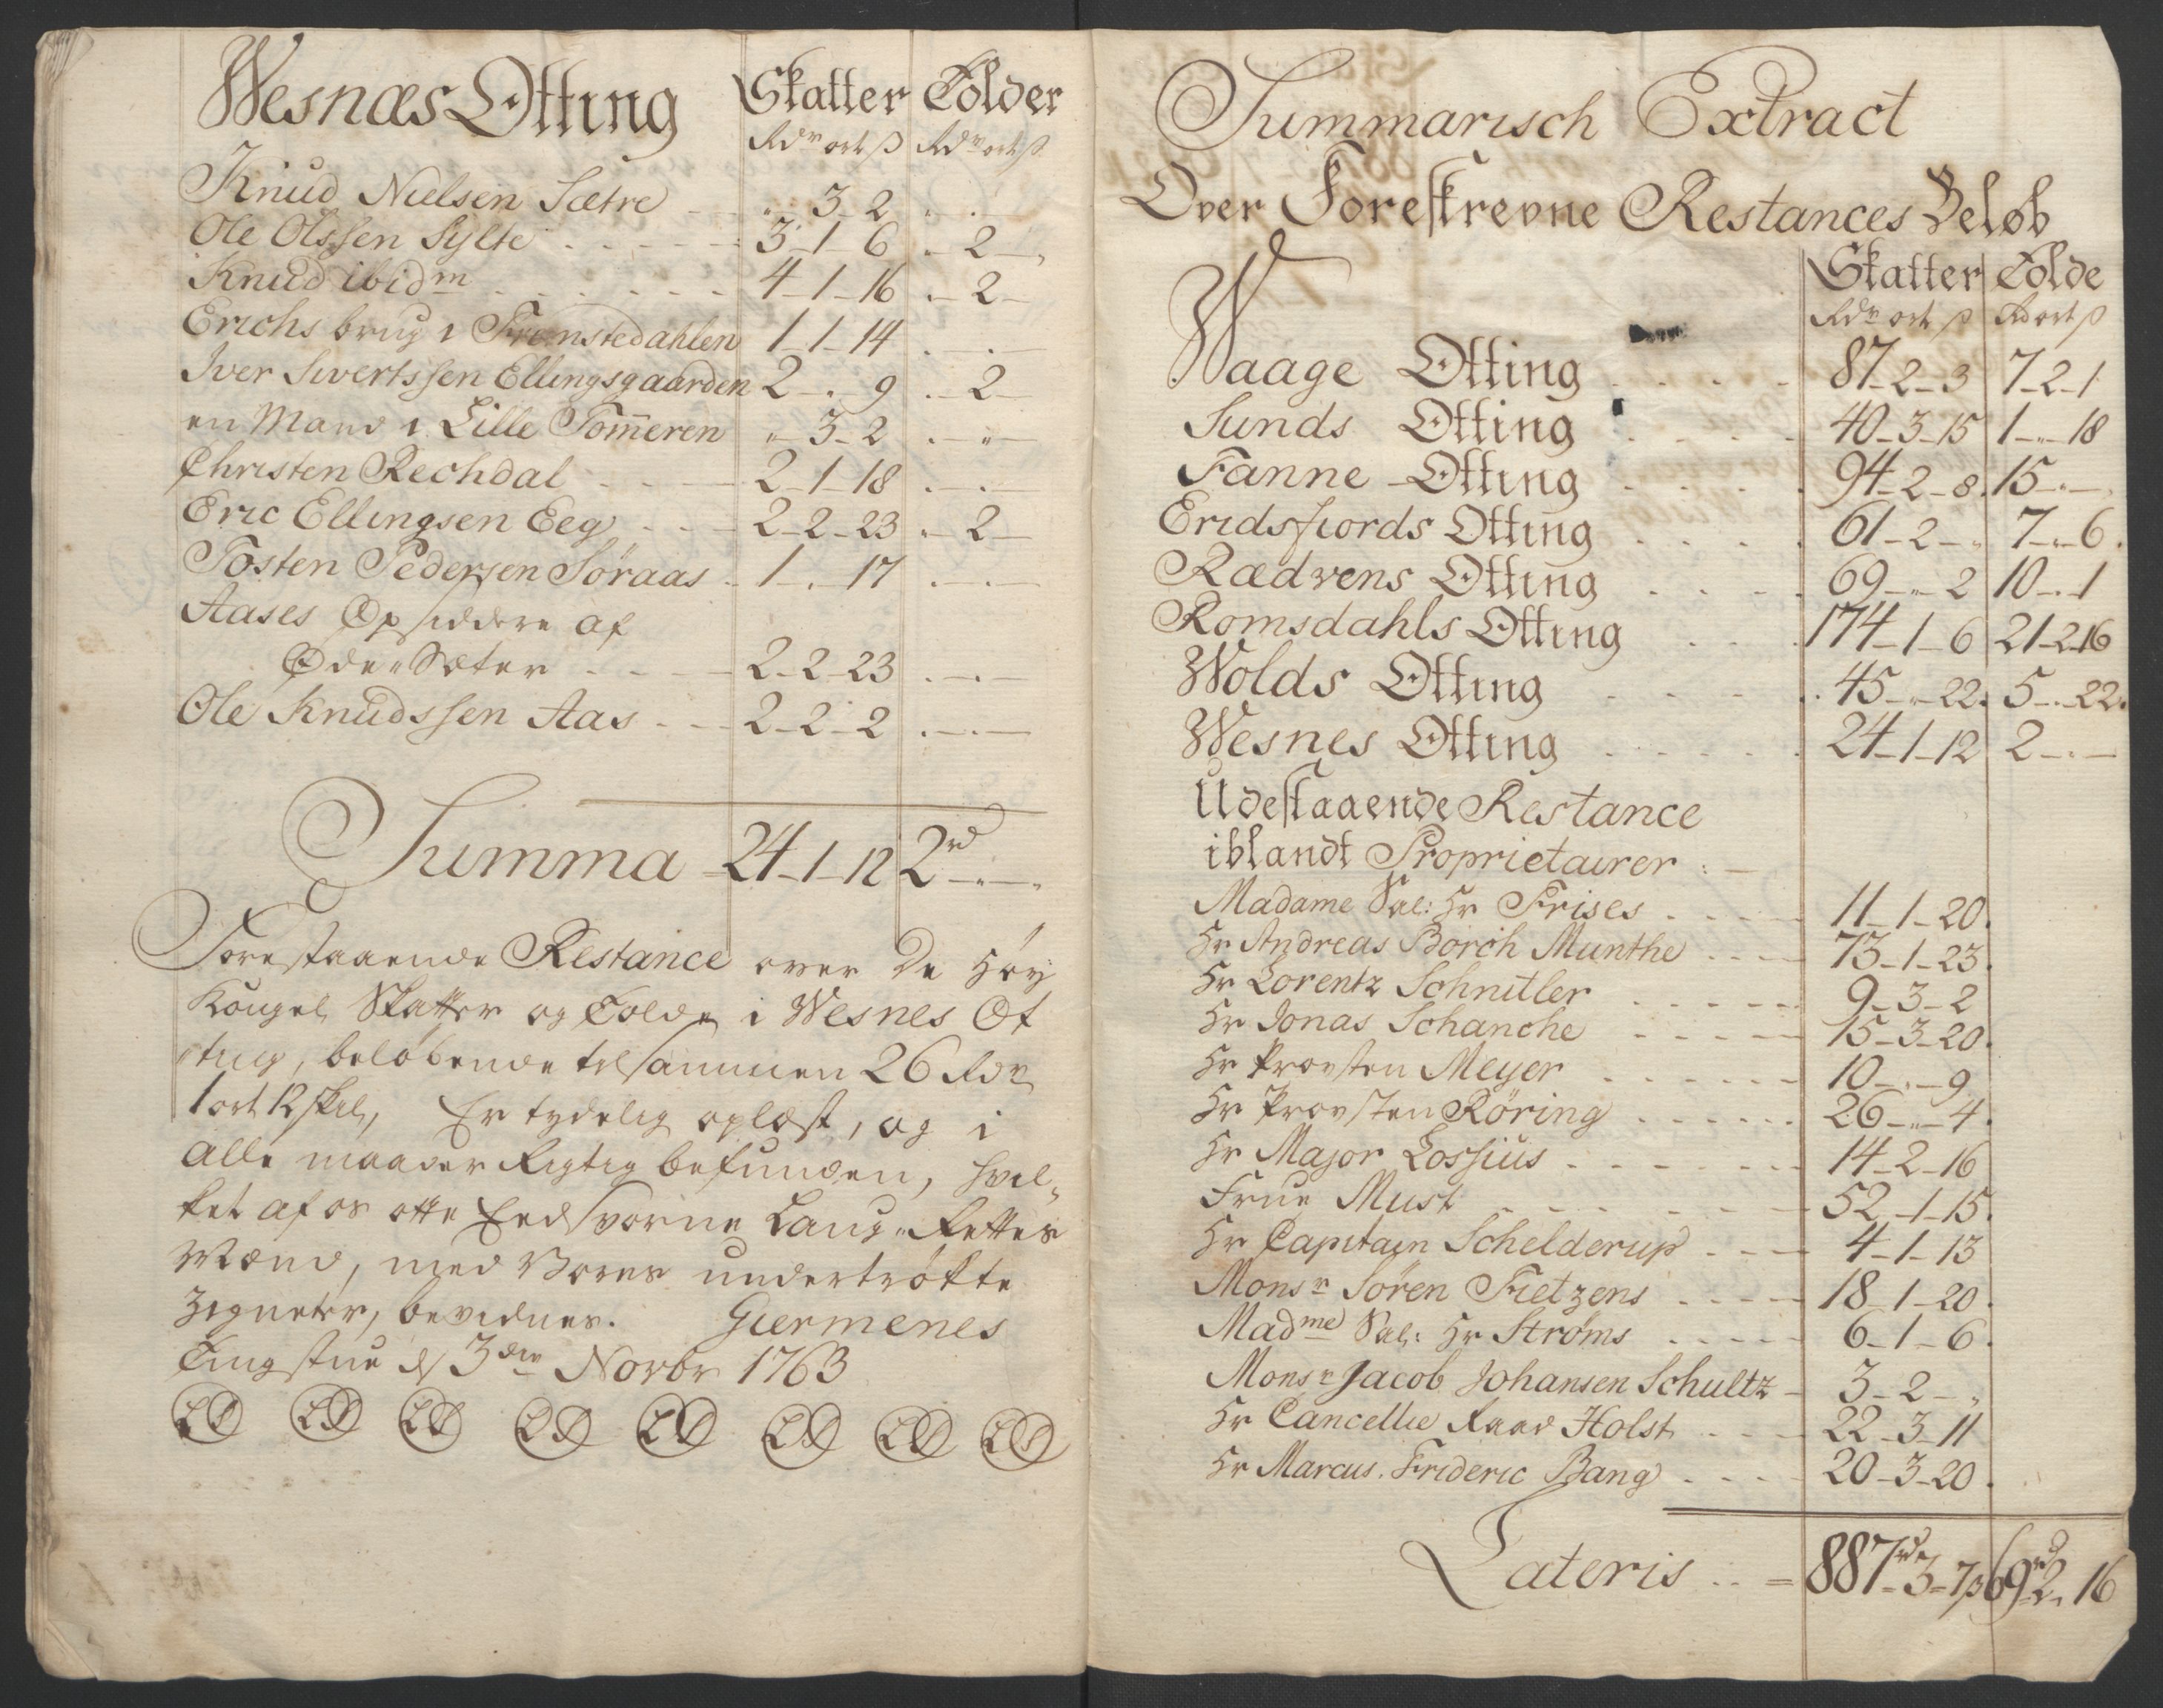 Wesnæs Otting Skatter Tolder
Rdr ort ß Rdr ort ß
Knud Nielsen Sætre - " 3 - 2 " . —
Ole Olssen Sylte . - - - 3 - 1 - 6 . - 2 - ,
Knud ibidm . . . - - - 4 - 1 - 16 . - 2 -
Erichs brug i Fremstedahlen 1 - 1 - 14 . . —
Iver Sivertssen Ellingsgaarden 2 - . 9 . - 2 -
en Mand i Lille Tom̄eren " - 3 - 2 . - " -
Christen Rechdal - - - 2 - 1 - 18 . - . -
Eric Ellingsen Eeg - - - 2 - 2 - 23 " - 2 -
Tosten Pedersen Söraas . . 1 - . - 17 . - . -
Aases Opsiddere af
Øde-Sæter - - - 2 - 2 - 23 . - . -
Ole Knudssen Aas - - - 2 - 2 - 2 . - . -
Summa - 24 - 1 - 12 2rd - " - "
Forestaaende Restance over De Höy
Kongel Skatter og Tolde i Wesnes Ot
ting, beløbende tilsammen 26 Rdr
1 ort 12 skil, Er tydelig oplæst, og i
alle maader Rigtig befunden, hvil-
ket af os otte Eedsvorne Laug-Rettes
Mænd, med Vores undertrökte
Zigneter, bevidnes. Giermenes
Tingstue d 3die Novbr 1763
LS LS LS LS LS LS LS LS
Summarisch Extract
Over Foreskrevne Restances Beløb
Skatter Tolde
Rdr ort ß Rd ort ß
Waage Otting . . . . 87 - 2 - 3 7 - 2 - 1
Sunds Otting . . . . 40 - 3 - 15 1 - " - 18
Fanne - Otting . . . . 94 - 2 - 8 . 15 - " - .
Eridsfiords Otting . . . . 61 - 2 - " 7 - " - 6 .
Rædvens Otting . . . . 69 - " - 2 10 - . - 1
Romsdahls Otting . . . 174 - 1 - 6 21 - 2 - 16
Wolds Otting . . . . 45 - " - 22 . 5 - . - 22 .
Wesnes Otting . . . . 24 - 1 - 12 2 - . -
Udestaaende Restance
iblandt Proprietairer : -
Madame Sal: Hr Frises . . . . 11 - 1 - 20 .
Hr Andreas Borch Munthe . . . 73 - 1 - 23 .
Hr Lorentz Schnitler . . . . . 9 - 3 - 2
Hr Jonas Schanche . . . . 15 - 3 - 20 .
Hr Provsten Meyer . . . . . 10 - . - 9
Hr Provsten Röring . . . . . 26 - " - 4 .
Hr Major Lossius . . . . . 14 - 2 - 16
Frue Must . . . . . 52 - 1 - 15 .
Hr Capitain Schelderup . . . 4 - 1 - 13
Monsr Sören Fietzens . . . . 18 - 1 - 20 .
Madme Sal: Hr Ströms . . . . 6 - 1 - 6 .
Monsr Jacob Johansen Schultz - 3 - 2 - "
Hr Cancellie Raad Holst . . . 22 - 3 - 11
Hr Marcus. Frideric Bang . . . 20 - 3 - 20 .
Lateris . . = 887rd - 3 - 7ß 69rd 2 . 16